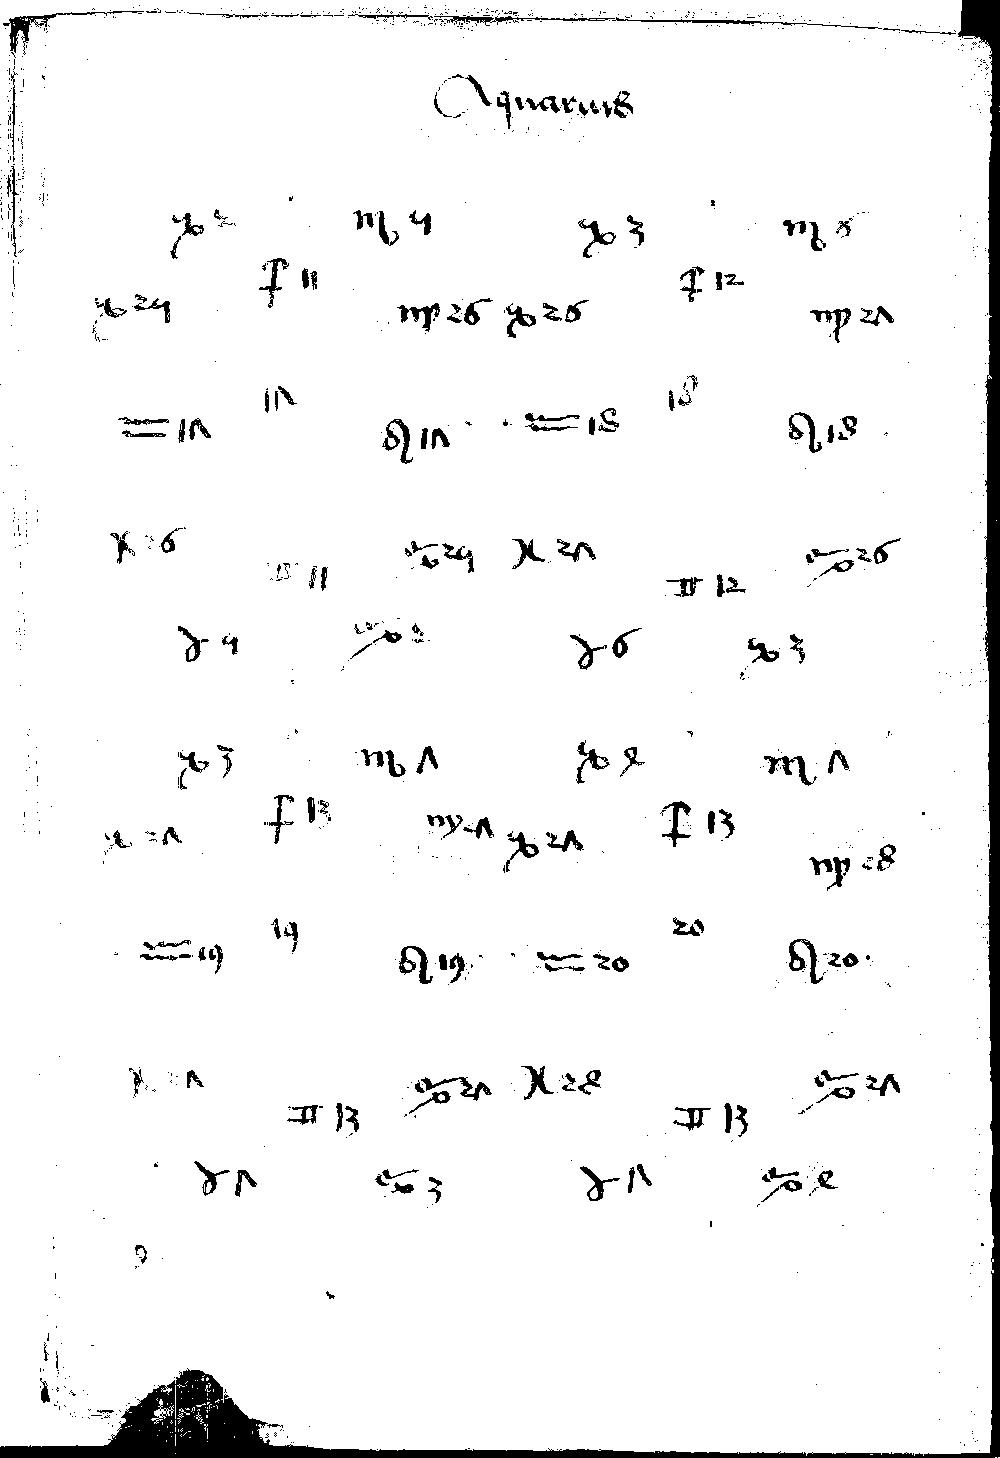 Aquarius
♑ 2 ♏ 5 ♑ 3 ♏ 6
♐ 11 ♐ 12
♑ 25 ♍ 26 ♑ 26 ♍ 27
17 18
♒ 17 ♌ 17 ♒ 18 ♌ 18
♓ 26 ♋ 25 ♓ 27 ♋ 26
♊ 11 ♊ 12
♈ 5 ♋ 2 ♈ 6 ♑ 3
♑ 3 ♏ 7 ♑ 4 ♏ 7
♐ 13 ♐ 13
♑ 27 ♍ 27 ♑ 27 ♍ 28
19 20
♒ 19 ♌ 19 ♒ 20 ♌ 20
♓ 27 ♋ 27 ♓ 28 ♋ 27
♊ 13 ♊ 13
♈ 7 ♋ 3 ♈ 7 ♋ 4